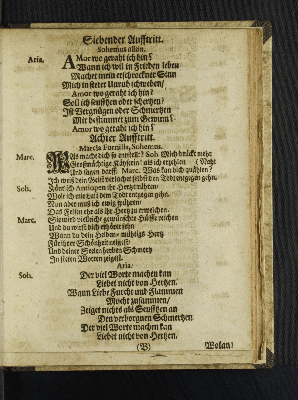 Siebender Aufftritt.
Sohemus allein.
Aria. Amor wo geraht ich hin?
Wann ich wil in Frieden leben
Machet mein erschrockner Sinn
Mich in steter Unruh schweben/
Amor wo geraht ich hin?
Soll ich seufftzen oder schertzen?
Ist Vergnügen oder Schmertzen
Mir bestimmet zum Gewinn?
Amor wo geraht ich hin?
Achter Aufftritt.
Marcia Furnilla, Sohemus.
Marc. Was macht dich so Soh. Mich drückt
Großmächtige als ich erzehlen
Und sagen darff. Marc. Was kan dich quählen?
Ich weiß dein Geist verlachet selbst den Todt entgegen gehn.
Soh. Hört ich Antiopen ihr Hertz rühren/
Wolt ich mit Lust dem Todt entgegen gehn.
Nun aber muß ich ewig spühren/
Das Felsen ehr als ihr Hertz zu erweichen.
Marc. Sie wird vielleicht gewünschte Hülffe reichen
Und du wirst dich erhöret sehn
Wann du dein Helden-mühtigs Hertz
Für ihrer Schönheit neigest/
Und deiner Seelen herben Schmertz
In steten Worten zeigest.
Aria.
Soh. Der viel Worte machen kan
Liebet nicht von Hertzen.
Wann Liebe Furcht und Flammen
Macht zusammen/
Zeiget nichts als Seufftzen an
Den verborgnen Schmertzen.
Der viel Worte machen kan
Liebet nicht von Hertzen.
(B) Wolan/